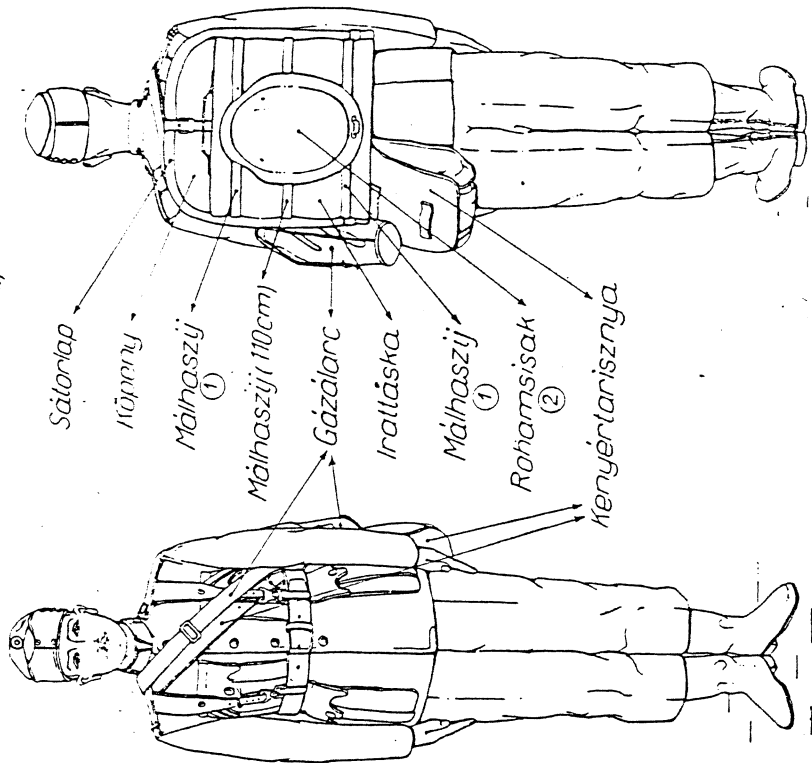 Sátorlap
Köpeny
Málhaszíj
1
Málhaszíj (110cm)
Gázálarc
Irattáska
Málhaszíj
1
Rohamsisak
2
Kenyértarisznya